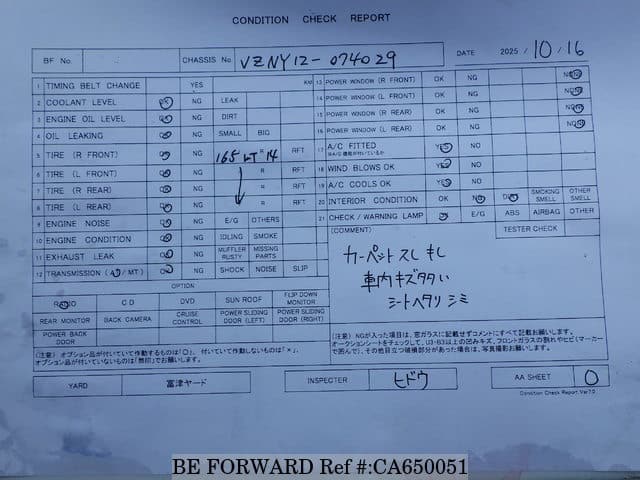 CONDITION CHECK REPORT
BF No. CHASSIS No. VZNY12-074029 DATE 2025/10/16
1 TIMING BELT CHANGE YES KM
2 COOLANT LEVEL OK NG LEAK
3 ENGINE OIL LEVEL OK NG DIRT
4 OIL LEAKING OK NG SMALL BIG
5 TIRE (R FRONT) OK NG 165 LT R 14 RFT
6 TIRE (L FRONT) OK NG R RFT
7 TIRE (R REAR) OK NG R RFT
8 TIRE (L REAR) OK NG R RFT
9 ENGINE NOISE OK NG E/G OTHERS
10 ENGINE CONDITION OK NG IDLING SMOKE
11 EXHAUST LEAK OK NG MUFFLER RUSTY MISSING PARTS
12 TRANSMISSION (AT/MT) OK NG SHOCK NOISE SLIP
OPTION
RADIO CD DVD SUN ROOF FLIP DOWN MONITOR
REAR MONITOR BACK CAMERA CRUISE CONTROL POWER SLIDING DOOR (LEFT) POWER SLIDING DOOR (RIGHT)
POWER BACK DOOR
(注意) オプション品が付いていて作動するものは「○」、付いていて作動しないものは「×」、
オプション品が付いていないものは「無印」でお願いします。
13 POWER WINDOW (R FRONT) OK NG NON
14 POWER WINDOW (L FRONT) OK NG NON
15 POWER WINDOW (R REAR) OK NG NON
16 POWER WINDOW (L REAR) OK NG NON
17 A/C FITTED YES NO
18 WIND BLOWS OK YES NO
19 A/C COOLS OK YES NO
20 INTERIOR CONDITION OK NG DIRT SMOKING SMELL OTHER SMELL
21 CHECK / WARNING LAMP OK E/G ABS AIRBAG OTHER
TESTER CHECK
(COMMENT)
カーペットスレ モシ
車内キズタタい
シートヘタリ シミ
(注意) NGが入った項目は、窓ガラスに記載せずコメントにすべて記載お願いします。
オークションシートをチェックして、U3・B3以上の凹みキズ、フロントガラスの割れやヒビ(マーカー
で囲んで)、その他目立つ破損部分があった場合は、写真撮影お願いします。
YARD 富津ヤード INSPECTER ヒドウ AA SHEET 0
Condition Check Report Ver7.0
BE FORWARD Ref #:CA650051